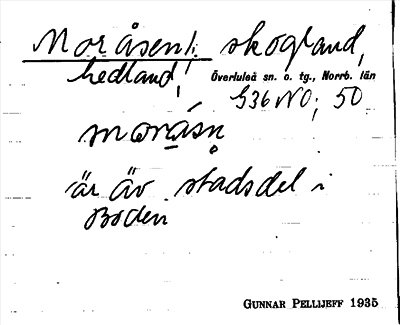 Moråsen l. skogland,
hedland! Överluleå sn. o. tg., Norrb. län
G36 NO; 50
moråsn̥
är äv. stadsdel i
Boden
GUNNAR PELLIJEFF 1935